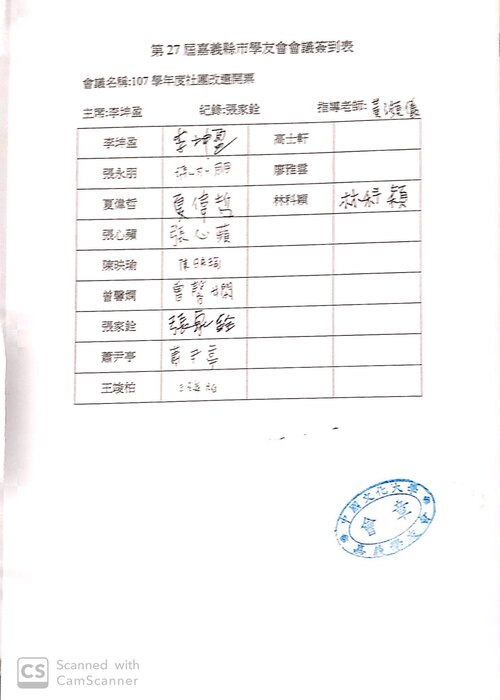 第 27 屆嘉義縣市學友會會議簽到表
會議名稱:107 學年度社團改選開票
主席:李坤盈 紀錄:張家銓 指導老師:
李坤盈 李坤盈 高士軒
張永朋 張永朋 廖雅雲
夏偉哲 夏偉哲 林科穎 林科穎
張心蘋 張心蘋
陳映瑜 陳映瑜
曾馨嫻 曾馨嫻
張家銓 張家銓
蕭尹亭 蕭尹亭
王竣柏
中國文化大學
會章
嘉義學友會
CS Scanned with
CamScanner